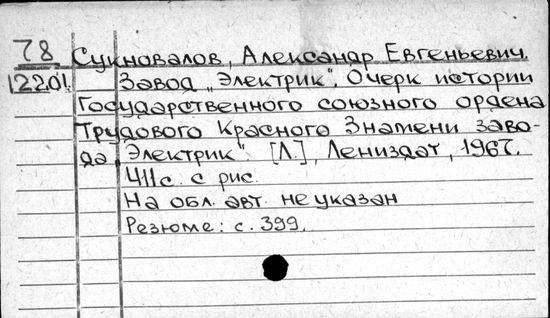 78 Сукновалов, Александр Евгеньевич.
12201 Завод „Электрик". Очерк истории
Государственного союзного ордена
Трудового Красного Знамени заво-
да „Электрик". [Л.], Лениздат, 1967.
411 с. с рис.
На обл. авт. не указан
Резюме: с. 399.